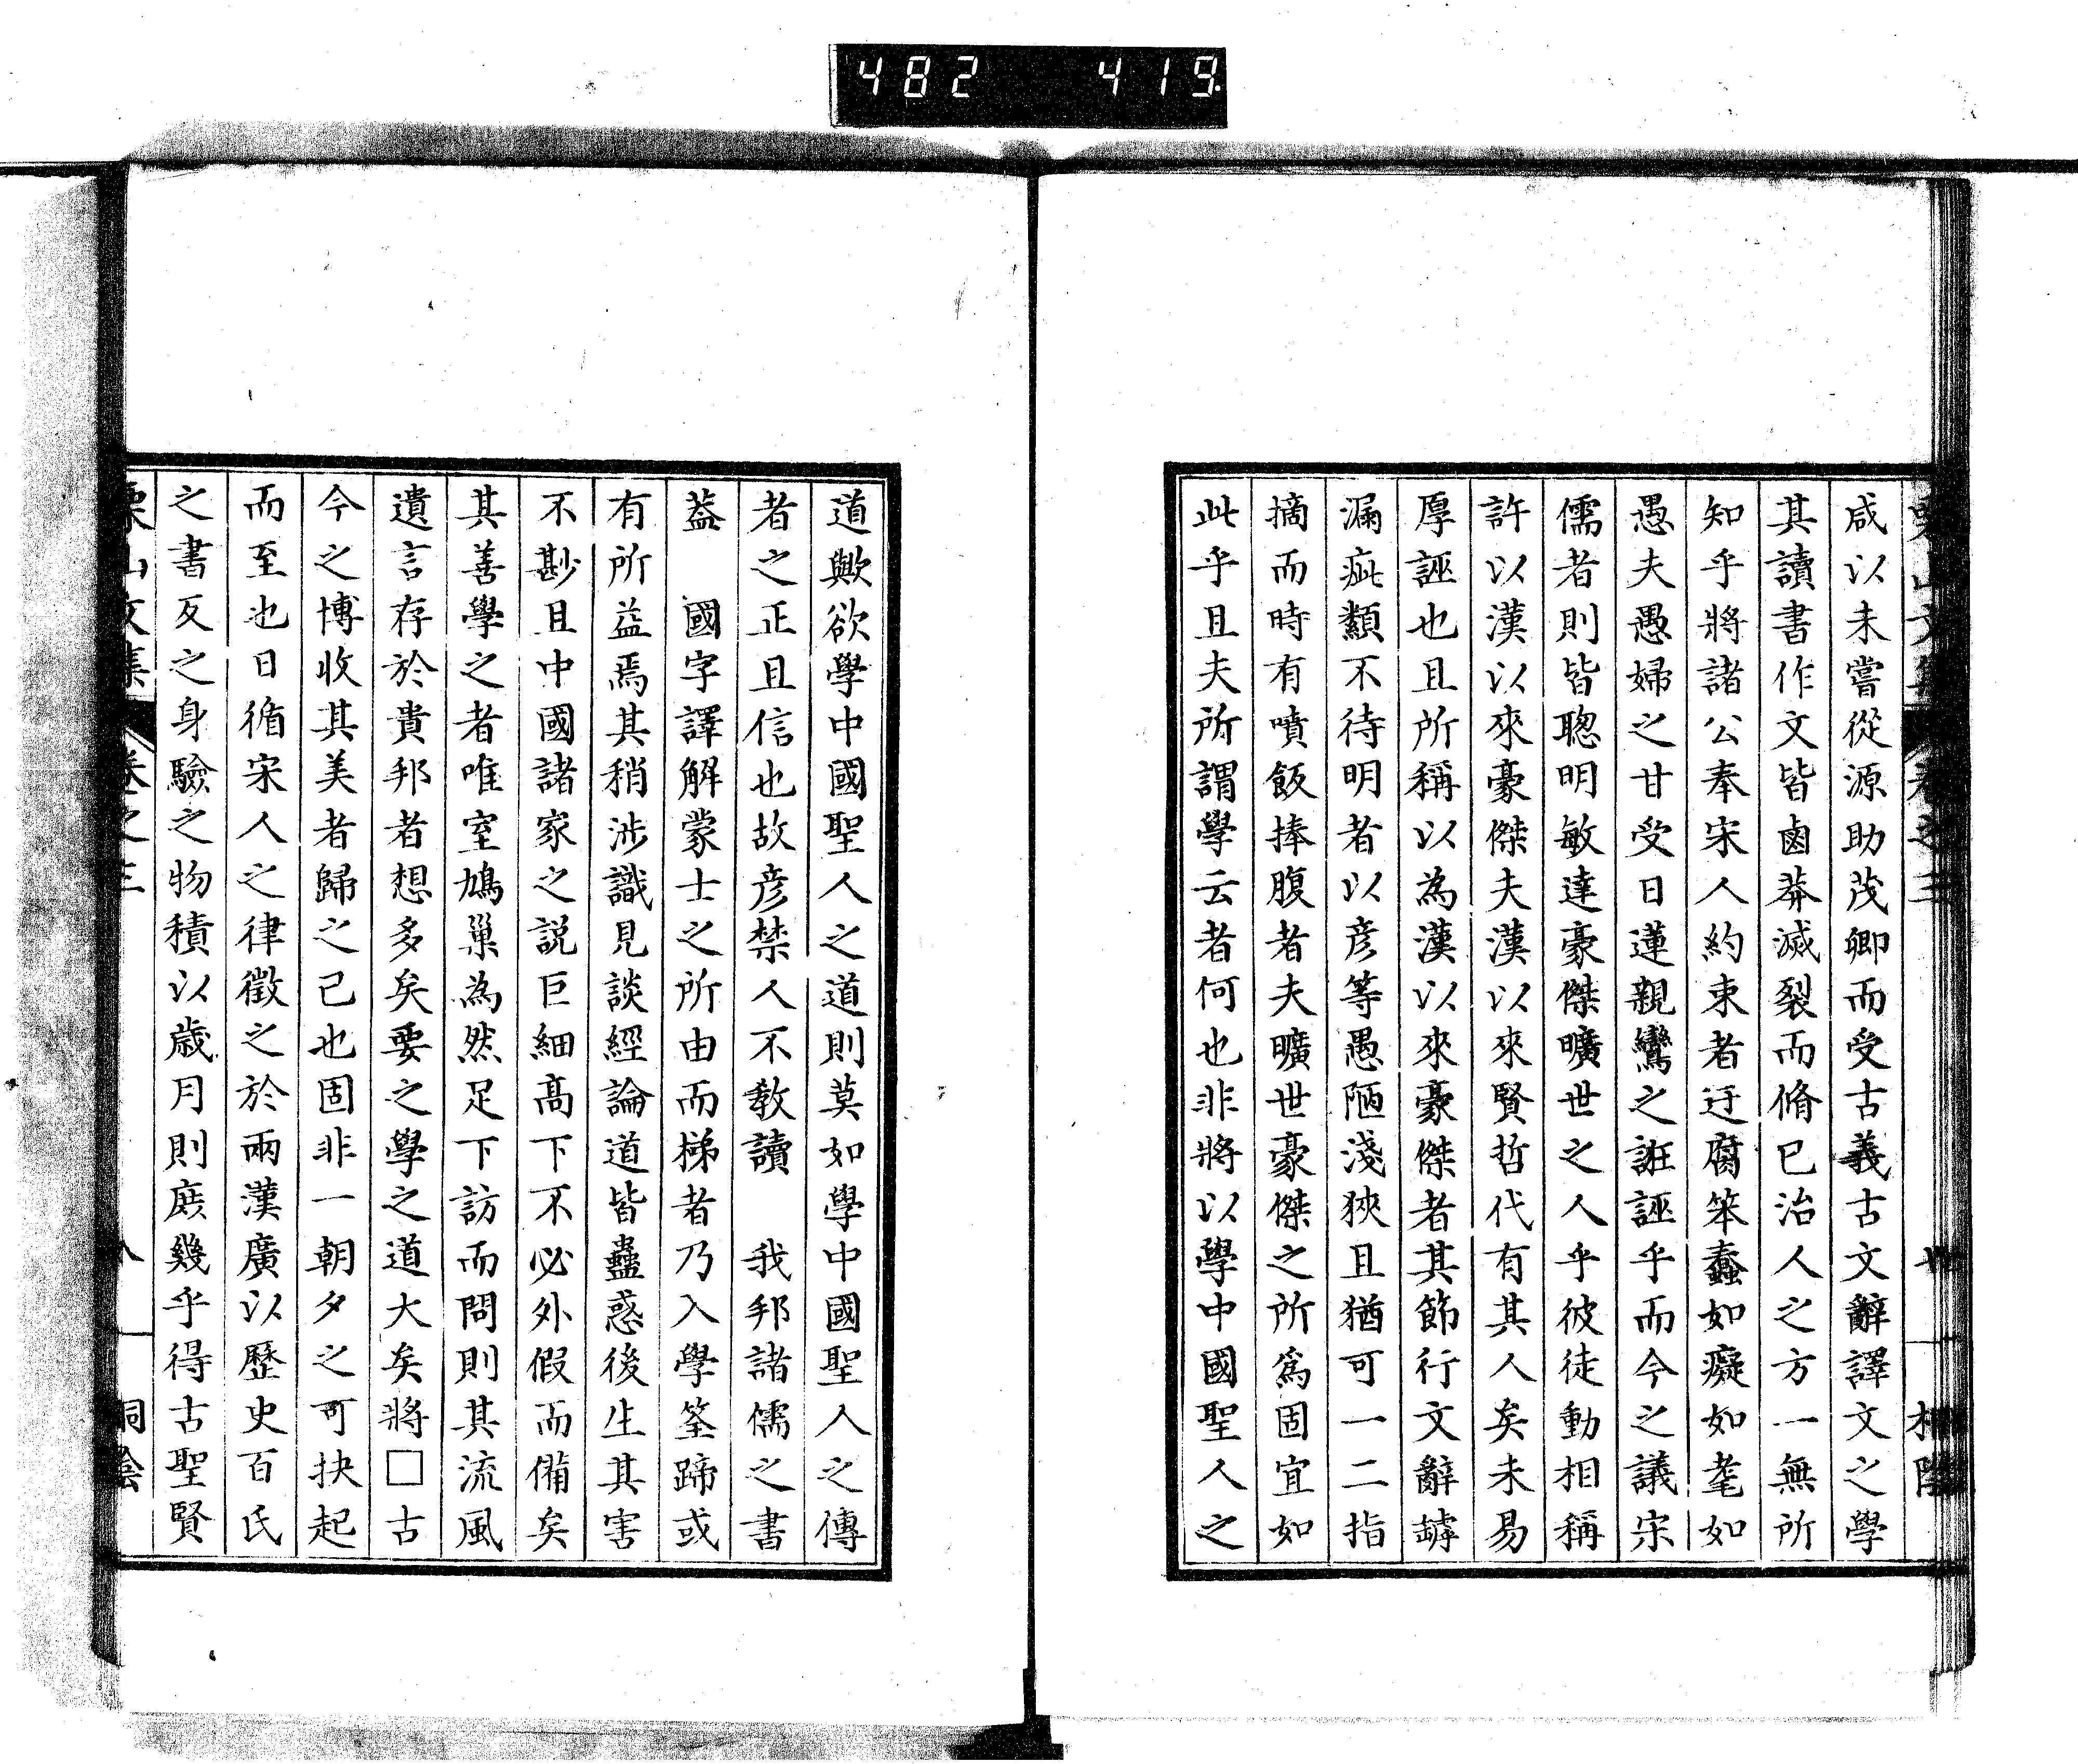 482 419
咸以未嘗從源助茂卿而受古義古文辭譯文之學
其讀書作文皆鹵莽滅裂而脩己治人之方一無所
知乎將諸公奉宋人約束者迂腐笨蠢如癡如耄如
愚夫愚婦之甘受日蓮親鸞之誑誣乎而今之議宋
儒者則皆聰明敏達豪傑曠世之人乎彼徒動相稱
許以漢以來豪傑夫漢以來賢哲代有其人矣未易
厚誣也且所稱以為漢以來豪傑者其節行文辭罅
漏疵纇不待明者以彦等愚陋淺狹且猶可一二指
摘而時有噴飯捧腹者夫曠世豪傑之所爲固宜如
此乎且夫所謂學云者何也非將以學中國聖人之
道歟欲學中國聖人之道則莫如學中國聖人之傳
者之正且信也故彦禁人不敎讀　我邦諸儒之書
葢　國字譯解蒙士之所由而梯者乃入學筌蹄或
有所益焉其稍涉識見談經論道皆蠱惑後生其害
不尠且中國諸家之説巨細高下不必外假而備矣
其善學之者唯室鳩巢為然足下訪而問則其流風
遺言存於貴邦者想多矣要之學之道大矣將□古
今之博收其美者歸之己也固非一朝夕之可抉起
而至也日循宋人之律徵之於兩漢廣以歷史百氏
之書反之身驗之物積以歳月則庶幾乎得古聖賢
栗山文集 卷之三 八 桐陰